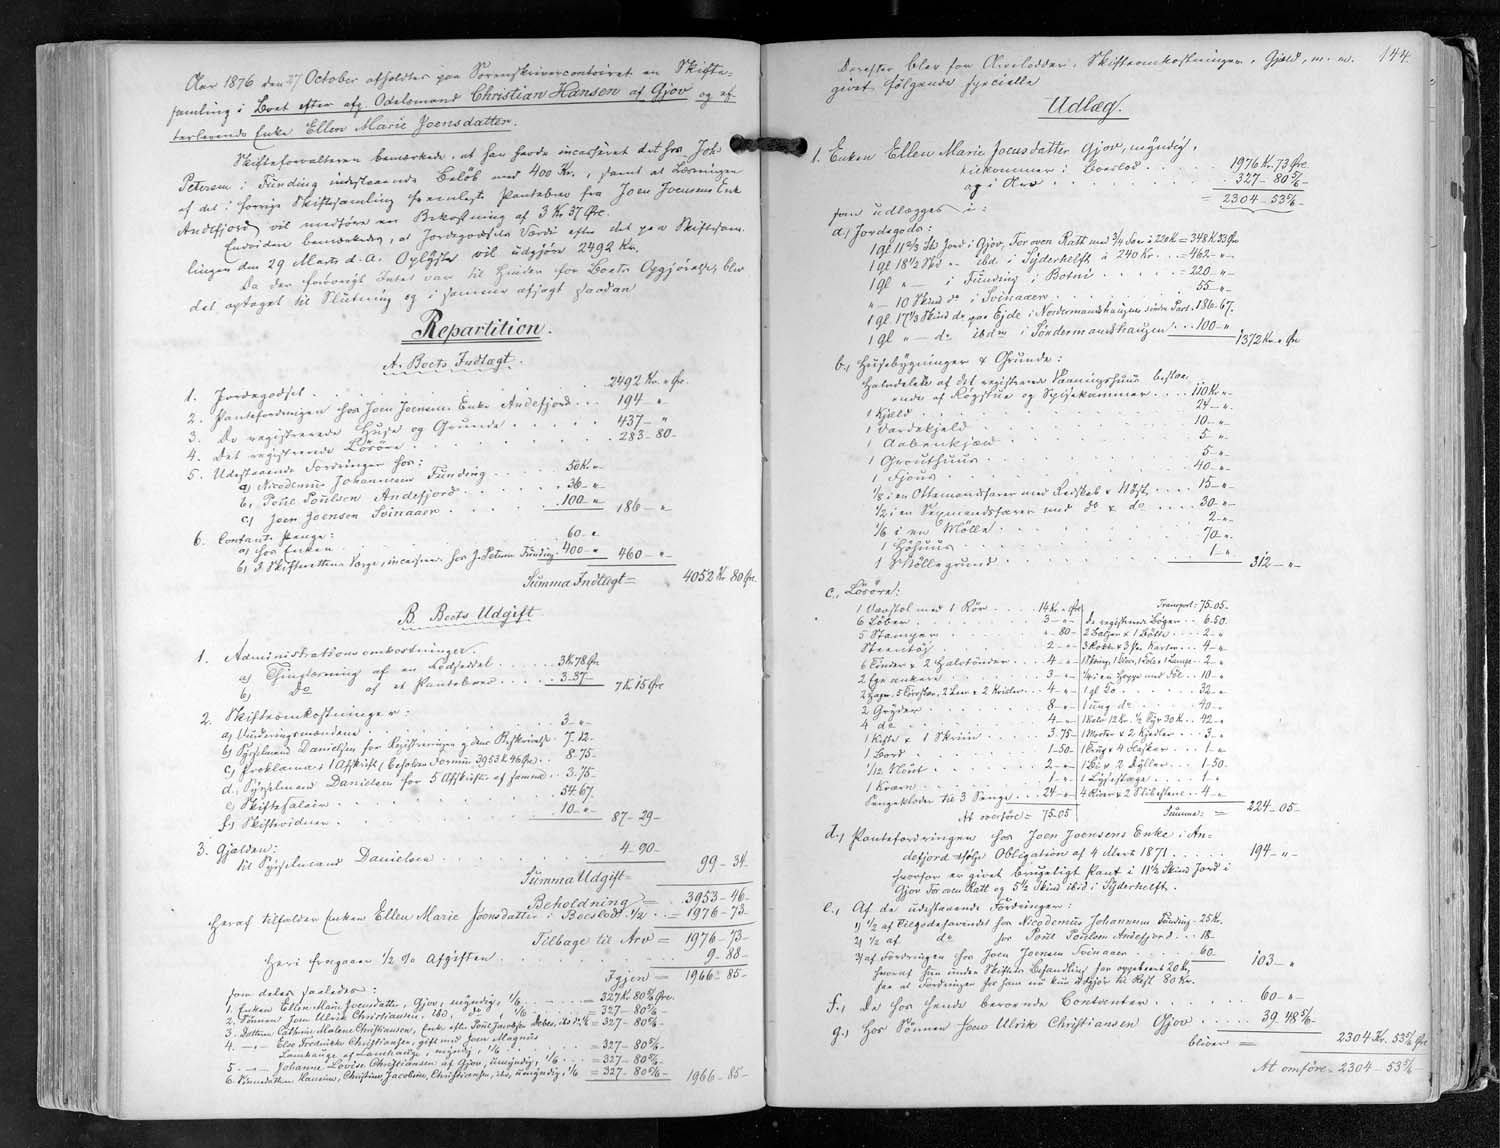 Aar 1876 den 27 October afholdtes paa Sorenskrivercontoiret en Skifte-
samling i Boet efter afg. Odelsmand Christian Hansen af Gjov og ef-
terlevende Enke Ellen Marie Joensdatter.
Skifteforvalteren bemærkede, at han havde incasseret det hos Joh.
Petersen i Funding indestaaende Beløb med 400 Kr., samt at Læsningen
af det i forrige Skiftesamling fremlagte Pantebrev fra Joen Joensens Enke
Andefjord vil medføre en Bekostning af 3 Kr 37 Øre.
Endvidere bemærkedes, at Jordegodsets Værdi efter det paa Skiftesam-
lingen den 29 Marts d. A. Oplyste vil udgjøre 2492 Kr.
Da der forøvrigt Intet var til Hinder for Boets Opgjørelse, blev
det optaget til Slutning og i samme afsagt saadan
Repartition.
A. Boets Indtægt.
1. Jordegodset . . . 2492 Kr. " Øre.
2. Pantefordringen hos Joen Joensens Enke Andefjord . . . 194 - "
3. De registrerede Huse og Grunde . . . 437 - "
4. Det registrerede Løsøre . . . 283 - 80 -
5. Udestaaende Fordringer hos:
a) Nicodemus Johannesen Funding . . . 50 Kr "
b) Poul Poulsen Andefjord . . . 36 - "
c) Joen Joensen Svinaaer . . . 100 - " 186 - "
6. Contante Penge:
a) hos Enken . . . 60 - "
b) I Skifterettens Værge, incasseret hos J. Petersen Funding 400 - " 460 - "
Summa Indtægt = 4052 Kr 80 Øre.
B. Boets Udgift
1. Administrationsomkostninger.
a) Thinglæsning af en Lodseddel . . . 3 Kr 78 Øre
b) Do af et Pantebrev . . . 3 - 37 - 7 Kr 15 Øre
2. Skifteomkostninger:
a) Vurderingsmændene . . . 3 - "
b) Sysselmand Danielsen for Registreringen og dens Beskrivelse 7. 12 -
c) Proklamas 1 Afskrift (Besholden Formue 3953 K 46 Øre) . . 8 - 75 -
d) Sysselmand Danielsen for 5 Afskrifter af samme . . 3 - 75 -
e) Skiftesalair . . . 54 67.
f) Skiftevidner . . . 10 - " 87 - 29 -
3. Gjælden:
til Sysselmand Danielsen . . . 4 - 90 - 99 - 34 -
Summa Udgift =
Beholdning = 3953 - 46 -
Heraf tilfalder Enken Ellen Marie Joensdatter i Boeslod 1/2 . . = 1976 - 73 -
Tilbage til Arv = 1976 - 73 -
Heri fragaaer 1/2 % Afgiften . . . 9 - 88 -
Igjen = 1966 - 85 -
som deles saaledes:
1. Enken Ellen Marie Joensdatter, Gjov, myndig, 1/6 . . . = 327 Kr 80 5/6 Øre.
2. Sønnen Joen Ulrik Christiansen, ibd., do, 1/6 . . . = 327 - 80 5/6 -
3. Datteren Cathrine Malene Christiansen, Enke efter Poul Jacobsen Debes, ibd. 1/6 = 327 - 80 5/6 -
4. - " - Else Fredrikke Christiansen, gift med Joen Magnus
Lamhauge af Lamhauge, myndig, 1/6 . . . = 327 - 80 5/6 -
5. - " - Johanne Lovise Christiansen af Gjov, umyndig, 1/6 . . . = 327 - 80 5/6 -
6. Hansine, Christine, Jacobine, Christiansen, ibd., umyndig, 1/6 = 327 - 80 5/6 - 1966 - 85 -
144.
Derefter blev for Arvelodder, Skifteomkostninger, Gjæld, m. m.
givet følgende specielle
Udlæg.
1. Enken Ellen Marie Joensdatter Gjov, myndig,
tilkommer i Boeslod . . . 1976 Kr. 73 Øre
og i Arv . . . 327 - 80 5/6 -
= 2304 - 53 5/6 -
som udlægges i:
a.) Jordegods:
1 gl 11 2/3 Sk Jord i Gjov, For oven Ratt med 3/4 Foer i 220 K = 348 K 33 Øre
1 gl 18 1/2 Skd " - ibd. i Syderhelft à 240 Kr . . . = 462 - "
1 gl " - i Funding i Botni . . . = 220 - "
" - 10 Skind do i Svinaaer . . . 55 - "
1 gl. 17 1/3 Skind do paa Ejde i Nordermandshaugen søndre Part . 186 - 67.
1 gl " - do ibdm i Søndermandshaugen . . . 100 - " 1372 Kr. " Øre
b.) Husebygninger & Grunde:
Halvdelen af det registrerede Vaaningshuus bestaa-
ende af Røgstue og Spisekammer . . . 110 Kr "
1 Kjeld . . . 24 - "
1 Vardekjeld . . . 10 - "
1 Aabenkjæd . . . 5 - "
1 Grouthuus . . . 5 - "
1 Fjøus . . . 40 - "
1/8 i en Ottemandsfarer med Redskab & Nøst . . . 15 - "
1/2 i en Sexmandsfarer med do & do . . . 30 - "
1/6 i en Mølle . . . 2 - "
1 Høhuus . . . 70 - "
1 Møllegrund . . . 1 - " 312 - "
c.) Løsøre:
1 Vævstol med 1 Rør . . . 14 Kr " Øre
6 Løber . . . 3 - "
5 Stamper . . . " - 80 -
Steentøj . . . 2 - "
6 Tønder & 2 Halvtønder . . . 4 - "
2 Egeankere . . . 3 - "
2 Gryder . . . 8 - "
4 do . . . 4 - "
1 Kiste & 1 Skrin . . . 3 - 75 -
1 Bord . . . 1 - 50 -
1/12 Nøst . . . 2 - "
1 Kværn . . . 1 - "
Sengeklæder til 3 Senge . . . 24 - "
At overføre = 75 - 05
Transport: 75 - 05 -
de registrerede Bøger . . 6 - 50
2 Baljer & 1 Bøtte . . . 2 - "
4 - "
2 - "
10 - "
1 gl Ko . . . 32 - "
1 ung do . . . 40 - "
1 Kalv 12 Kr. 1/2 Tyr 30 K . . 42 - "
1 Morter & 2 Kjedler . . . 3 - "
1 Krug & 4 Flasker . . . 1 - "
1 - 50
1 Lysestage . . . 1 - "
4 River & 2 . . 4 - "
Summa = 224 - 05 -
d.) Pantefordringen hos Joen Joensens Enke i An-
defjord ifølge Obligation af 4 Marts 1871 . . . 194 - " -
hvorfor er givet brugeligt Pant i 11 1/2 Skind Jord i
Gjov For oven Ratt og 5 1/2 Skind ibid i Syderhelft.
e.) Af de udestaaende Fordringer:
1) 1/2 af Tilgodehavendet hos Nicodemus Johannesen Funding - 25 Kr.
2) 1/2 af do hos Poul Poulsen Andefjord . . 18 -
3) af Fordringen hos Joen Joensen Svinaaer . . 60 103 - "
hvoraf hun under Skiftets Behandling har oppebaaret 20 K,
saa at Fordringen for ham nu kun udgjør til Rest 80 Kr.
f.) De hos hende beroende Contanter . . . 60 - " -
g.) Hos Sønnen Joen Ulrik Christiansen Gjov . . . 39. 48 5/6 -
bliver = 2304 Kr. 53 5/6 Øre
At omføre = 2304 - 53 5/6 -